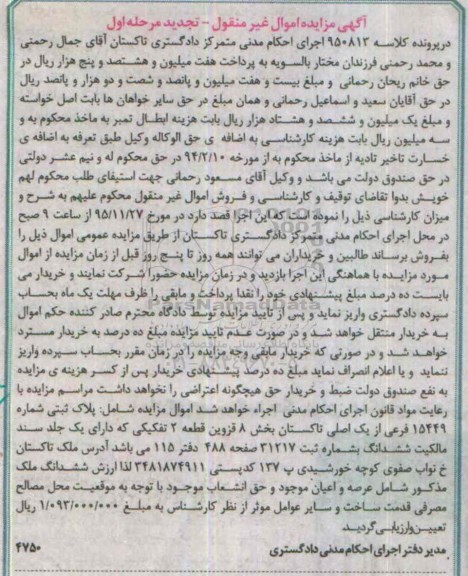 آگهی مزایده اموال غیر منقول - تجدید مرحله اول
درپرونده کلاسه ۹۵۰۸۱۳ اجرای احکام مدنی متمرکز دادگستری تاکستان آقای جمال رحمنی
و محمد رحمنی فرزندان مختار بالسویه به پرداخت هفت میلیون و هشتصد و پنج هزار ریال در
حق خانم ریحان رحمانی و مبلغ بیست و هفت میلیون و پانصد و شصت و دو هزار و پانصد ریال
در حق آقایان سعید و اسماعیل رحمانی و همان مبلغ در حق سایر خواهان ها بابت اصل خواسته
و مبلغ یک میلیون و ششصد و هشتاد هزار ریال بابت هزینه ابطال تمبر به ماخذ محکوم به و
سه میلیون ریال بابت هزینه کارشناسی به اضافه ی حق الوکاله وکیل طبق تعرفه به اضافه ی
خسارت تاخیر تادیه از ماخذ محکوم به از مورخه ۹۴/۲/۱۰ در حق محکوم له و نیم عشر دولتی
در حق صندوق دولت می باشد و وکیل آقای مسعود رحمانی جهت استیفای طلب محکوم لهم
خویش بدوا تقاضای توقیف و کارشناسی و فروش اموال غیر منقول محکوم علیهم به شرح و
میزان کارشناسی ذیل را نموده است که این اجرا قصد دارد در مورخ ۹۵/۱۱/۲۷ از ساعت ۹ صبح
در محل اجرای احکام مدنی متمرکز دادگستری تاکستان از طریق مزایده عمومی اموال ذیل را
بفروش برساند طالبین و خریداران می توانند همه روز تا پنج روز قبل از زمان مزایده از اموال
مورد مزایده با هماهنگی این اجرا بازدید و در زمان مزایده حضورا شرکت نمایند و خریدار می
بایست ده درصد مبلغ پیشنهادی خود را نقدا پرداخت و مابقی را ظرف مهلت یک ماه بحساب
سپرده دادگستری واریز نماید و پس از تایید مزایده توسط دادگاه محترم صادر کننده حکم اموال
به خریدار منتقل خواهد شد و در صورت عدم تایید مزایده مبلغ ده درصد به خریدار مسترد
خواهد شد و در صورتی که خریدار مابقی وجه مزایده را در زمان مقرر بحساب سپرده واریز
ننماید و یا اعلام انصراف نماید مبلغ ده درصد پیشنهادی خریدار پس از کسر هزینه ی مزایده
به نفع صندوق دولت ضبط و خریدار حق هیچگونه اعتراضی را نخواهد داشت مراسم مزایده با
رعایت مواد قانون اجرای احکام مدنی اجراء خواهد شد اموال مزایده شامل: پلاک ثبتی شماره
۱۵۴۴۹ فرعی از یک اصلی تاکستان بخش ۸ قزوین قطعه ۲ تفکیکی که دارای یک جلد سند
مالکیت ششدانگ بشماره ثبت ۳۱۲۱۷ صفحه ۴۸۸ دفتر ۱۱۵ می باشد آدرس ملک تاکستان
خ نواب صفوی کوچه خورشیدی پ ۱۳۷ کدپستی ۳۴۸۱۸۷۴۹۱۱ لذا ارزش ششدانگ ملک
مذکور شامل عرصه و اعیان موجود و حق انشعاب موجود با توجه به موقعیت محل مصالح
مصرفی قدمت ساخت و سایر عوامل موثر از نظر کارشناس به مبلغ ۱/۰۹۳/۰۰۰/۰۰۰ ریال
تعیین و ارزیابی گردید
مدیر دفتر اجرای احکام مدنی دادگستری ۴۷۵۰